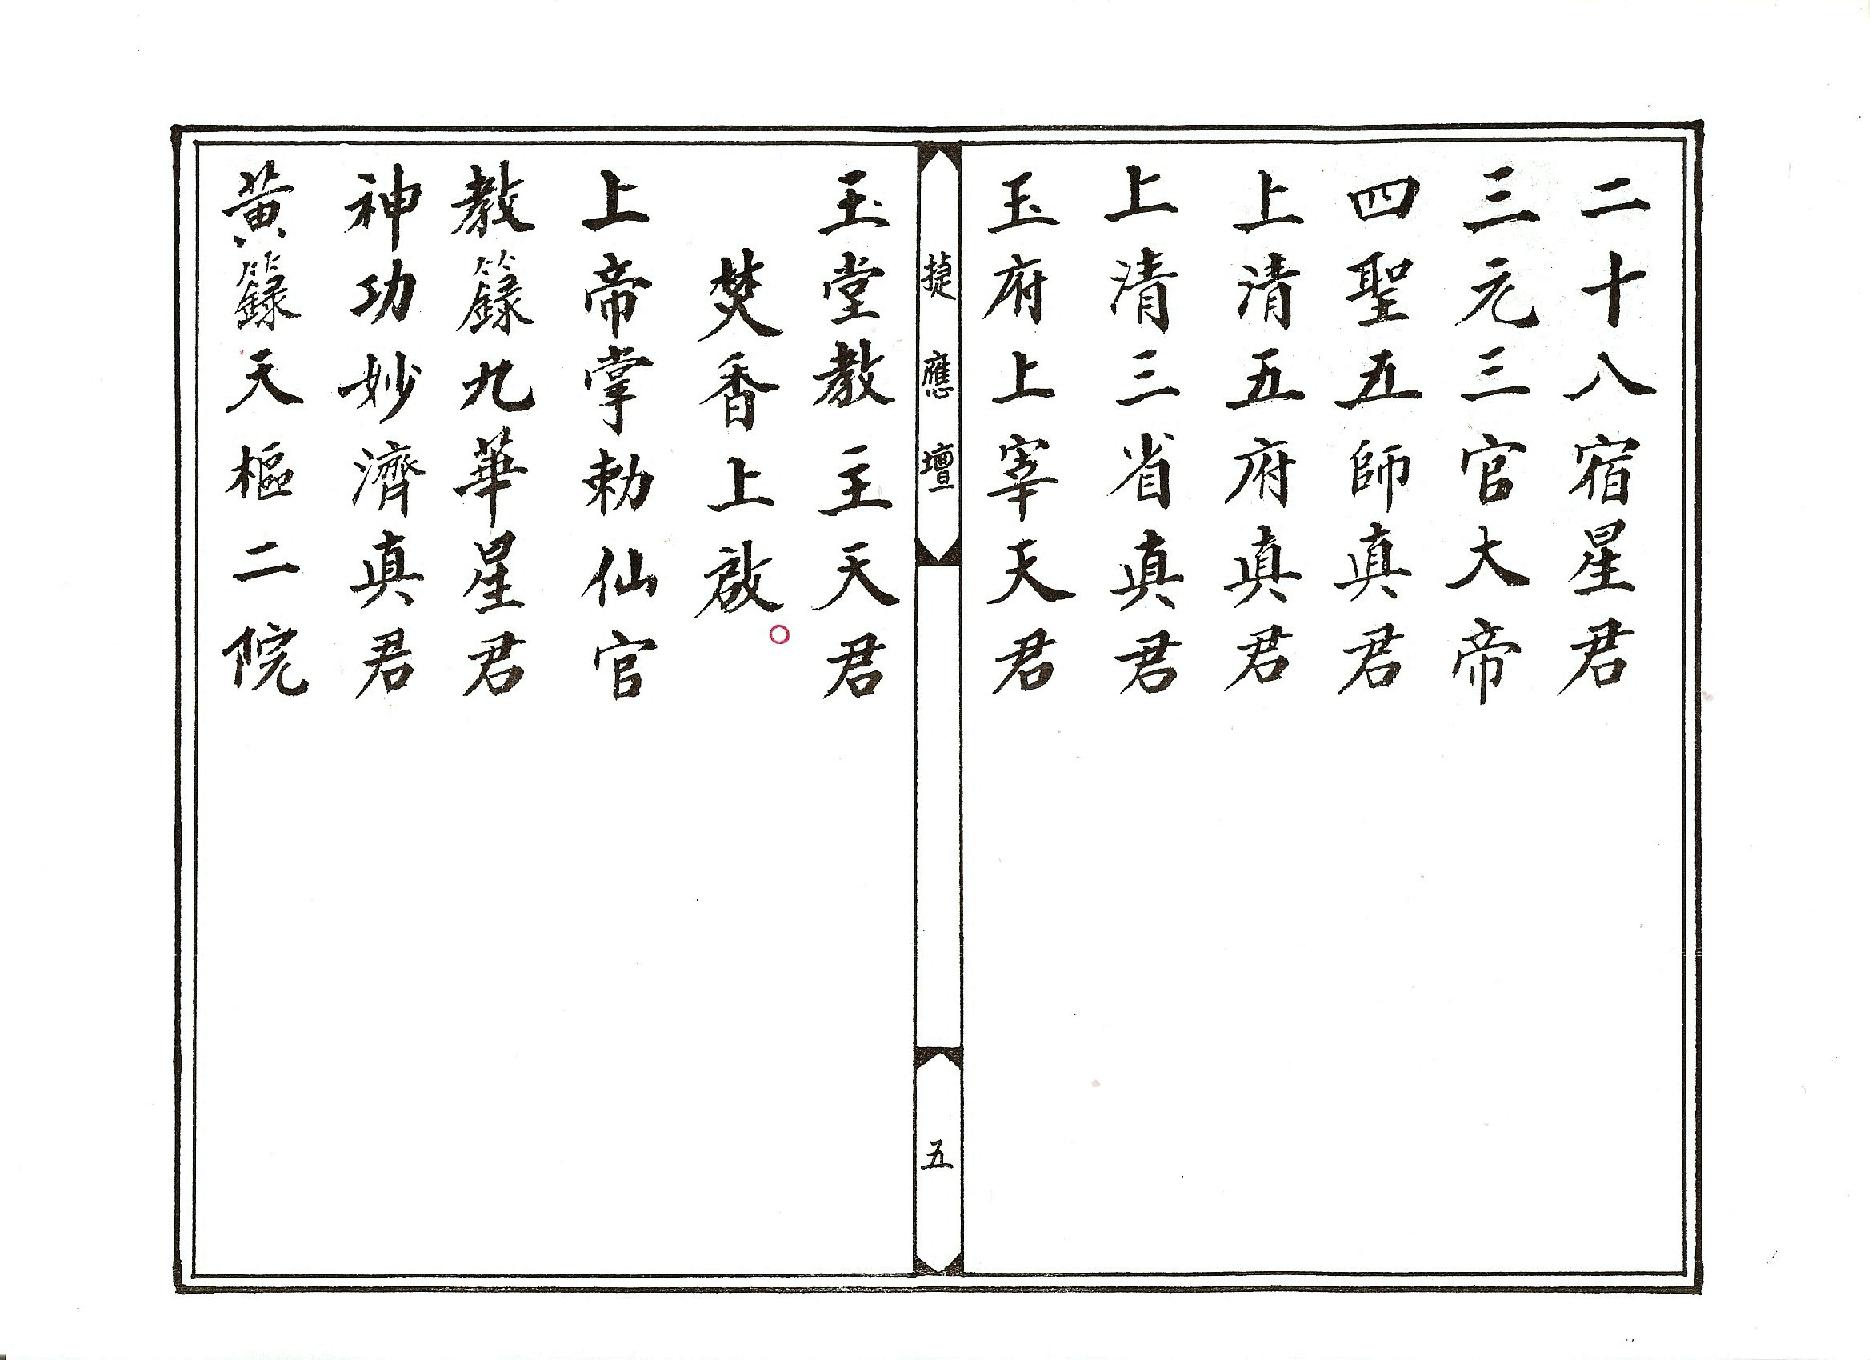 二十八宿星君
三元三官大帝
四聖五師真君
上清五府真君
上清三省真君
玉府上宰天君
捷應壇
五
玉堂教主天君
焚香上啟。
上帝掌勅仙官
教籙九華星君
神功妙濟真君
黃籙天樞二院